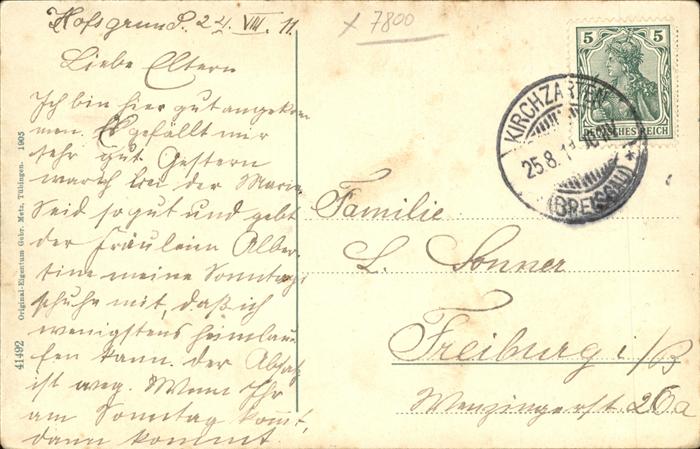 Hofsgrund. 24. VIII. 11.
Liebe Eltern
Ich bin hier gut angekom
men. Es gefällt mir
sehr gut Gestern
war ich bei der Marie
Seid so gut und gebt
der Fräulein Alber-
tine meine Sonntags
schuhe mit, daß ich
wenigstens heimlau-
fen kann. der Absatz
ist weg. Wenn Ihr
am Sonntag kommt,
dann kommt
x 7800
5 5
DEUTSCHES REICH
KIRCHZARTEN
25.8.11
(BREISGAU)
Familie
L. Sonner
Freiburg i/B
Wenzingerst. 26a
41492 Original-Eigentum Gebr. Metz, Tübingen. 1905